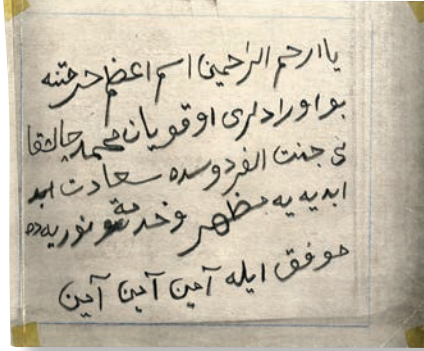 یا ارحم الراحمین اسم اعظم حرمتنه
بو اورادلری اوقویان محمد چالشقا
نی جنت الفردوسده سعادت ابد
ابدیه یه مظهر و خدمت نوریه ده
موفق ایله آمین آمین آمین